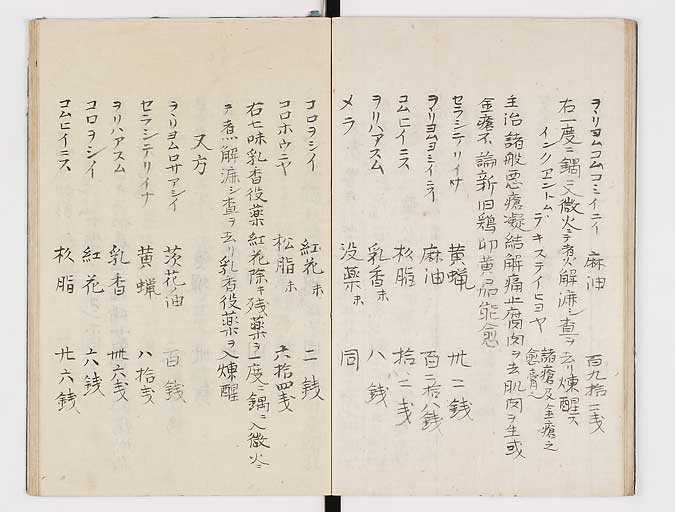 ヲヽリヨムコムコミイニイ 麻油 百九拾二戔
右一度ニ鍋ニ入微火ニテ煮解漉シ査ヲ去リ煉醒ス
インクヱントム デキステイヒヨヤ 諸瘡及金瘡之愈膏也
主治諸般悪瘡凝結解痛止腐肉ヲ去肌肉ヲ生或
金瘡不論新旧鶏卵黄 能愈
セラシテリイナ 黄蝋 卅二銭
ヲヽリヨムヲミイニイ 麻油 百二拾八銭
コムヒイニス 松脂 拾二戔
ヲリハアスム 乳香末 八銭
メラ 没薬末 同
コロヲシイ 紅花末 二銭
コロホウニヤ 松脂末 六拾四戔
右七味乳香役薬紅花除キ残薬ヲ一度ニ鍋ニ入微火ニ
テ煮解漉シ査ヲ去リ乳香役薬ヲ入煉醒
又方
ヲヽリヨムロサアシイ 茨花ノ油 百銭
セラシテリイナ 黄蝋 八拾戔
ヲリハアスム 乳香 卅六戔
コロヲシイ 紅花 六銭
コムヒイニス 松脂 廿六銭